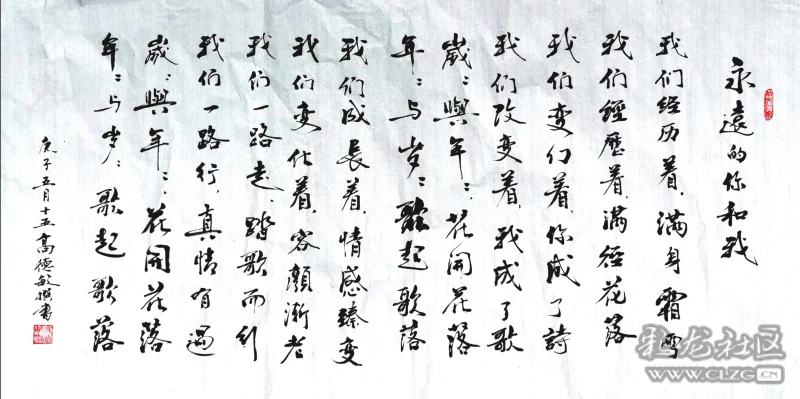 永遠的你和我
我们经历着，满身霜雪
我们經歷着，满径花落
我们变幻着，你成了詩
我们改变着，我成了歌
歲〻與年〻，花開花落
年〻与岁〻，歌起歌落
我们成長着，情感臻变
我们变化着，容顏渐老
我们一路走，踏歌而行
我们一路行，真情有遇
歲〻與年〻，花開花落
年〻与岁〻，歌起歌落
庚子五月十五高德敏撰書
虬龙社区
WWW.CLZG.CN